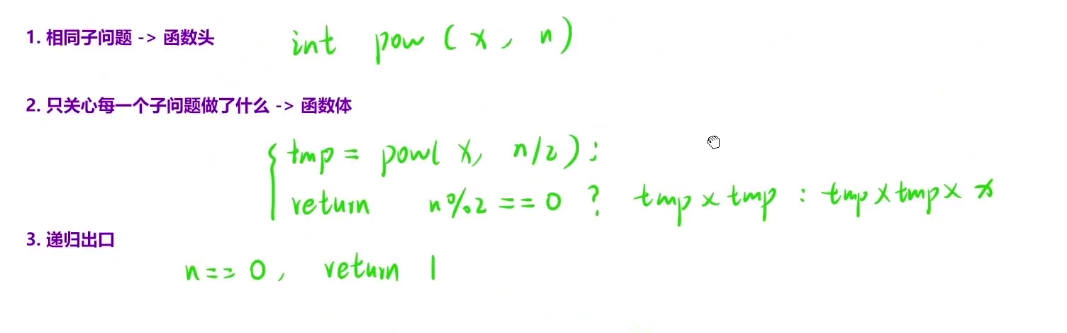 1. 相同子问题 -> 函数头 int pow ( x, n )
2. 只关心每一个子问题做了什么 -> 函数体
tmp = pow( x, n/2 );
return n%2 == 0 ? tmp × tmp : tmp × tmp × x
3. 递归出口
n == 0, return 1